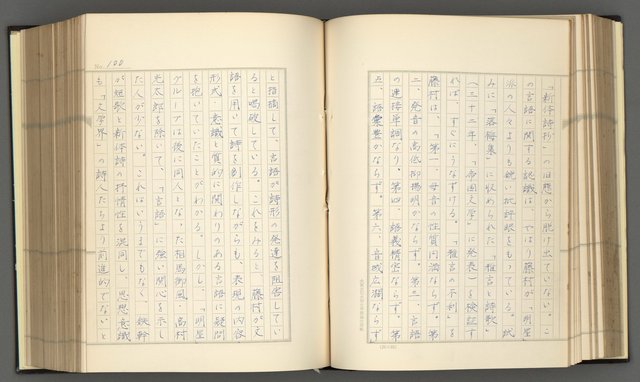 「新体詩抄」の旧態から脱け出ていない。こ
の言語に関する認識は、やはり藤村が「明星」
派の人々よりも鋭い批評眼をもっている。試
みに「落梅集」に収められた「雅言と詩歌」
(三十二年、「帝国文学」に発表)を検証す
れば、すぐにうなずける。「雅言の不利」を
藤村は、「第一、母音の性質円満ならず。第
二、発音の高低抑揚明かならず。第三、言語
の連接単調なり。第四、語義精密ならず。第
五、語彙豊かならず。第六、音域広濶ならず」
No. 100
と指摘して、言語が詩形の発達を阻害してい
ると喝破している。これをみると、藤村が文
語を用いて詩を創作しながらも、表現の内容
形式・意識と質的に関わりのある言語に疑問
を抱いていたことがわかる。しかし、「明星」
グループは後に同人となった相馬御風、高村
光太郎を除いて、「言語」に強い関心を示し
た人が少ない。これはいうまでもなく、鉄幹
が短歌と新体詩の抒情性を混同し、思想意識
も「文学界」の詩人たちより前進的でないと